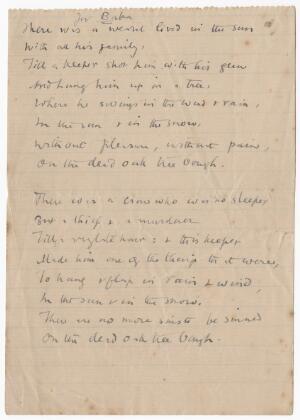 For Baba
There was a weasel lived in the sun
With all his family,
Till a keeper shot him with his gun
And hung him up on a tree,
Where he swings in the wind & rain,
In the sun & in the snow,
Without pleasure, without pain,
On the dead oak tree bough.
There was a crow who was no sleeper
But a thief & a murderer
Till a very late hour: & this keeper
Made him one of the things that were,
To hang & flap in rain & wind,
In the sun & in the snow.
There are no more sins to be sinned
On the dead oak tree bough.